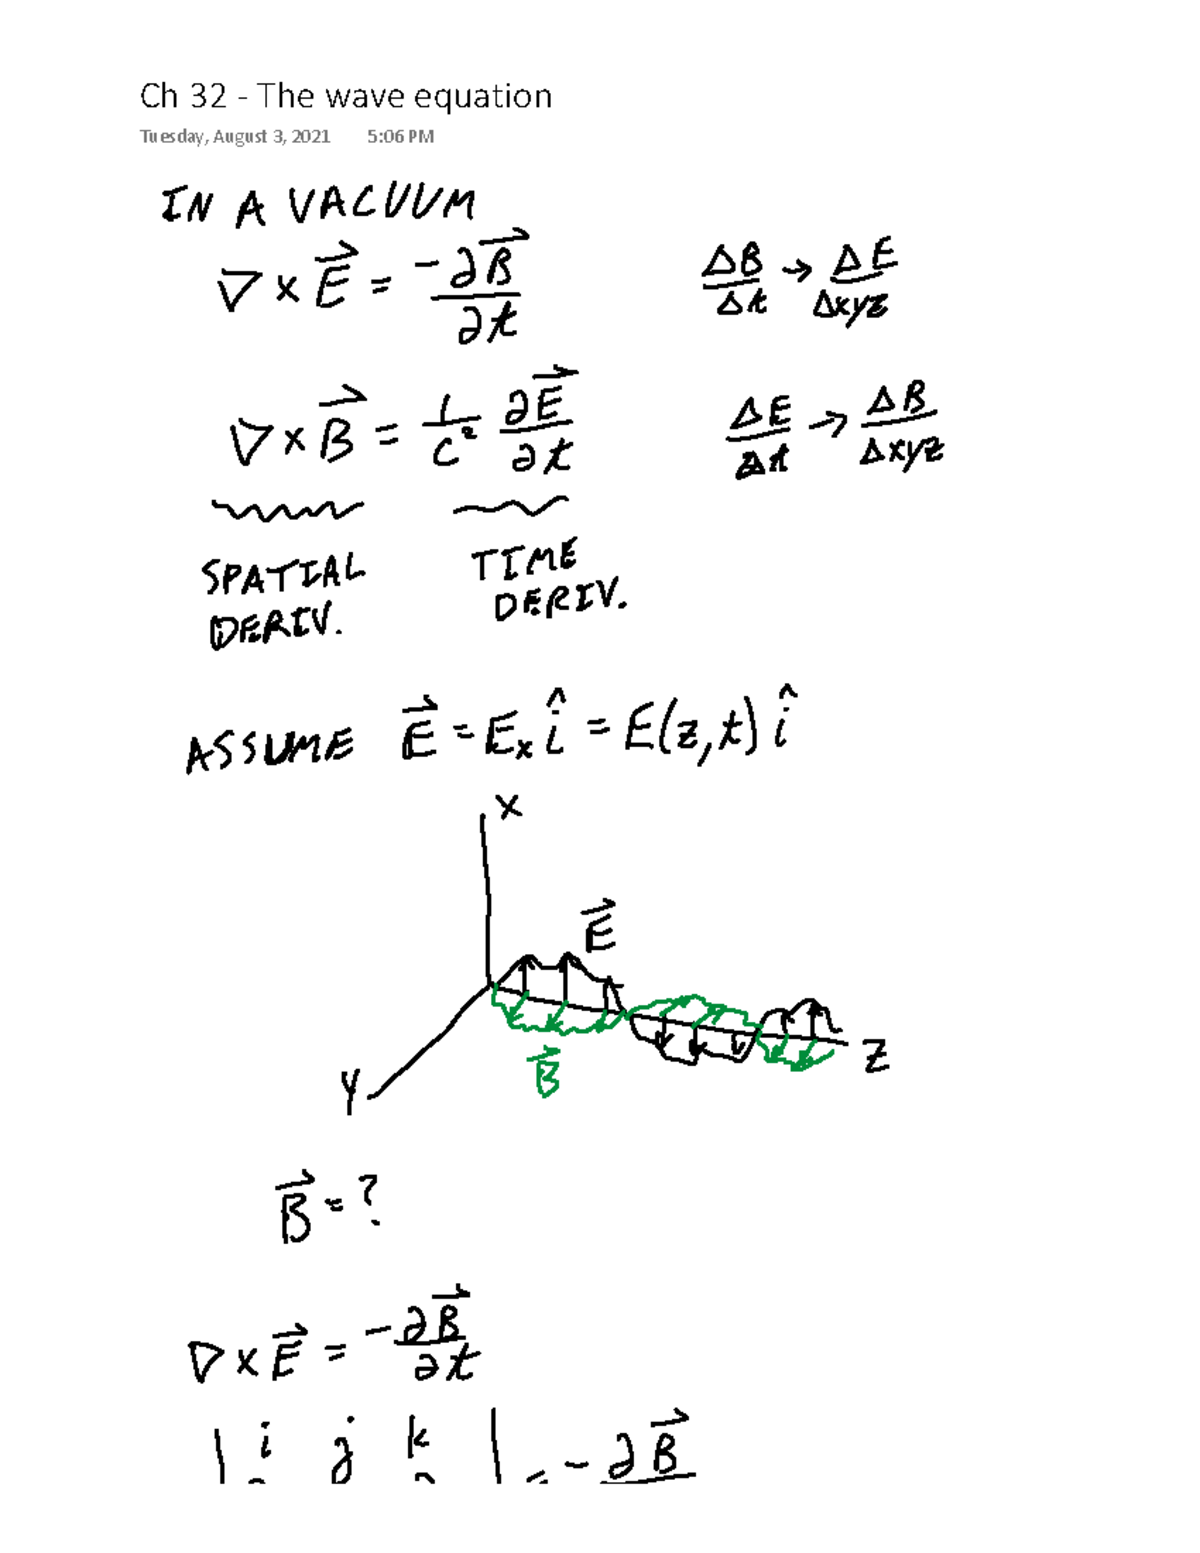 Ch 32 - The wave equation
Tuesday, August 3, 2021 5:06 PM
IN A VACUUM
∇ × E⃗ = -∂B⃗/∂t ΔB/Δt → ΔE/Δxyz
∇ × B⃗ = 1/c² ∂E⃗/∂t ΔE/Δt → ΔB/Δxyz
SPATIAL DERIV. TIME DERIV.
ASSUME E⃗ = Eₓ î = E(z,t) î
X
E⃗
B⃗
Z
Y
B⃗ = ?
∇ × E⃗ = -∂B⃗/∂t
| i j k | = -∂B⃗